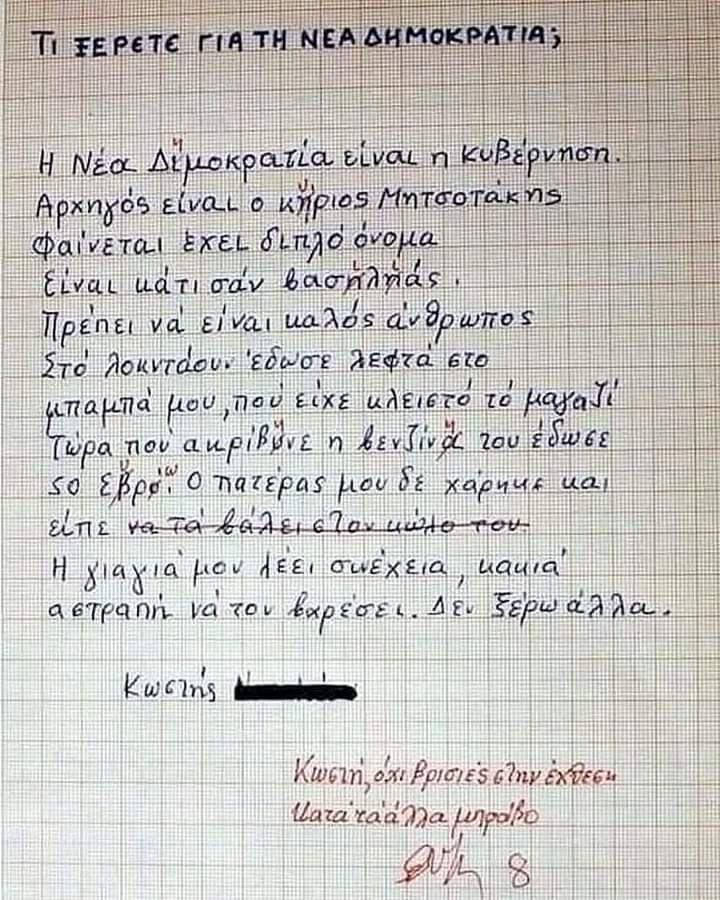 ΤΙ ΞΕΡΕΤΕ ΓΙΑ ΤΗ ΝΕΑ ΔΗΜΟΚΡΑΤΙΑ;
Η Νέα Δημοκρατία είναι η κυβέρνηση.
Αρχηγός είναι ο κύριος Μητσοτάκης
Φαίνεται έχει διπλό όνομα
Είναι κάτι σάν βασηληάς.
Πρέπει νά είναι καλός άνθρωπος
Στό λοκντάουν έδωσε λεφτά στο
μπαμπά μου, πού είχε κλειστό τό μαγαζί
Τώρα πού ακρίβηνε η βενζίνα του έδωσε
50 Εβρό. Ο πατέρας μου δε χάρηκε και
είπε να τά βάλει στον κώλο του
Η γιαγιά μου λέει συνέχεια, κακιά
αστραπή νά τον βαρέσει. Δεν ξέρω άλλα.
Κωστής
Κωστή, όχι βρισιές στην έκθεση
Κατά τα άλλα μπράβο
8